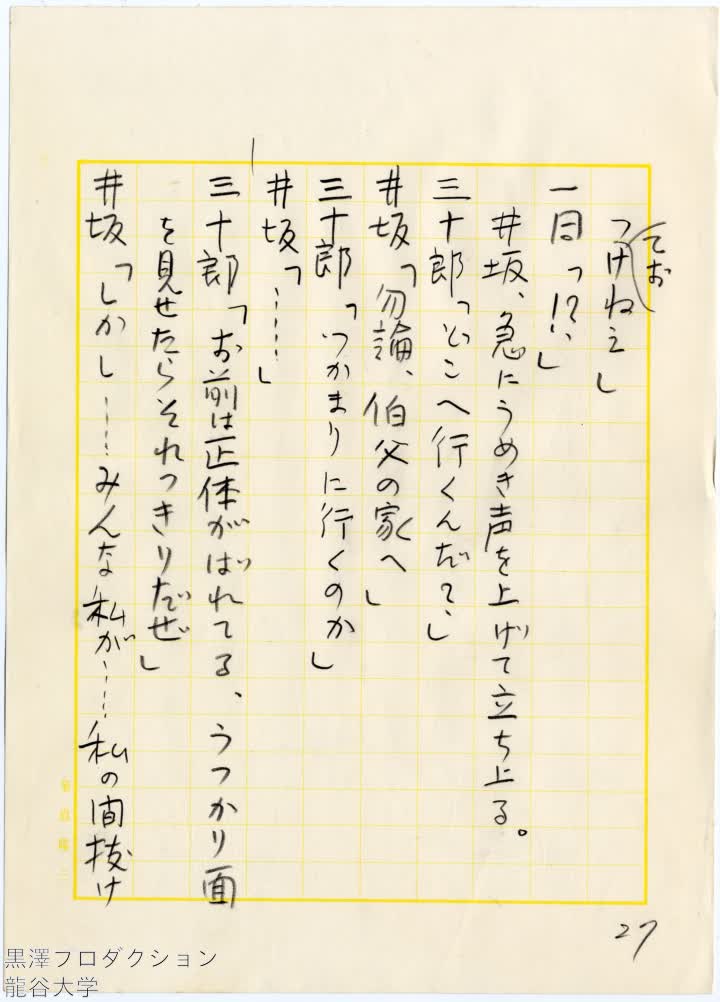 ておつけねえ」
一同「!?」
井坂、急にうめき声を上げて立ち上る。
三十郎「どこへ行くんだ?」
井坂「勿論、伯父の家へ」
三十郎「つかまりに行くのか」
井坂「……」
三十郎「お前は正体がばれてる、うつかり面
を見せたらそれつきりだぜ」
井坂「しかし……みんな私が……私の間抜け
27
黒澤フロダクション
龍谷大学